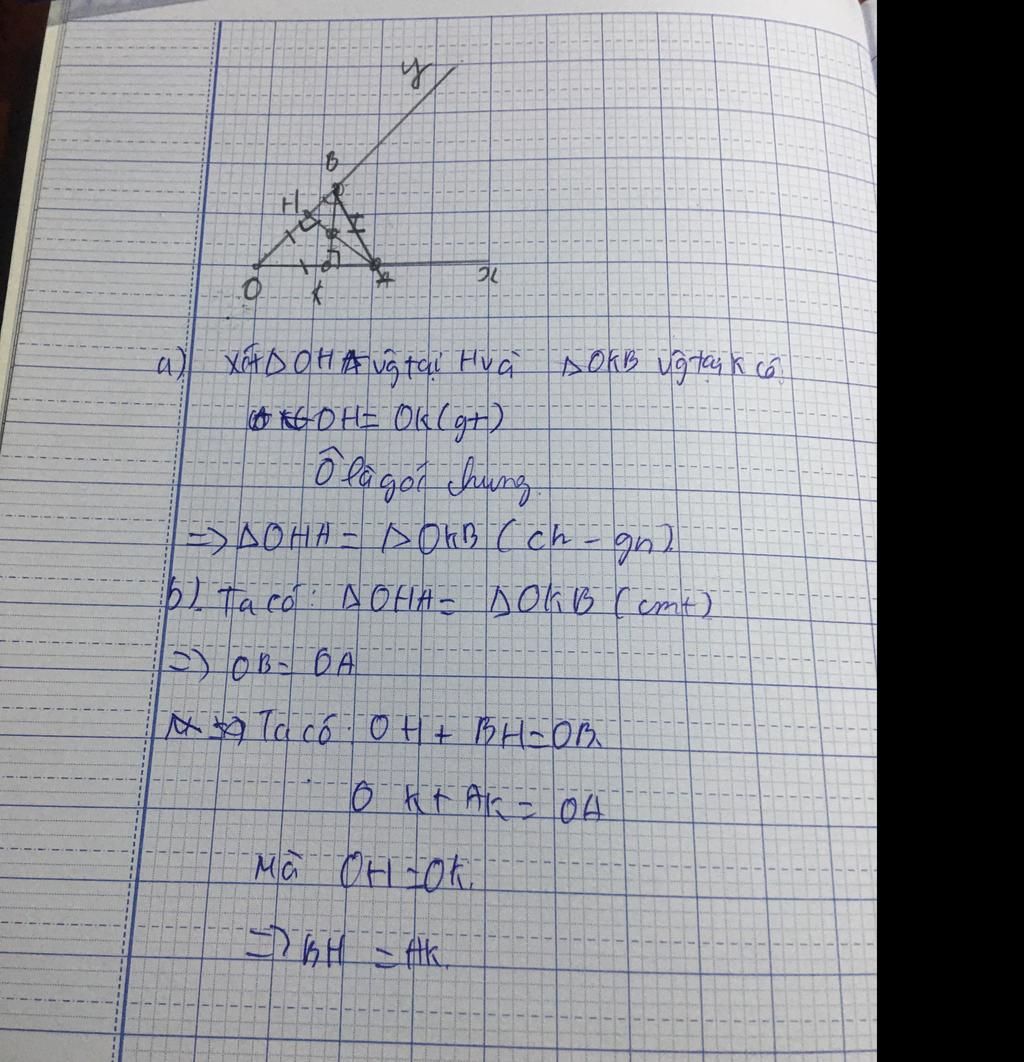 y
B
H
I
O
K
A
x
a) Xét ΔOHA vg tại H và ΔOKB vg tại K có:
OH = OK (gt)
Ô là góc chung.
=> ΔOHA = ΔOKB (ch - gn)
b) Ta có: ΔOHA = ΔOKB (cmt)
=> OB = OA
Ta có: OH + BH = OB.
OK + AK = OA
Mà OH = OK.
=> BH = AK.